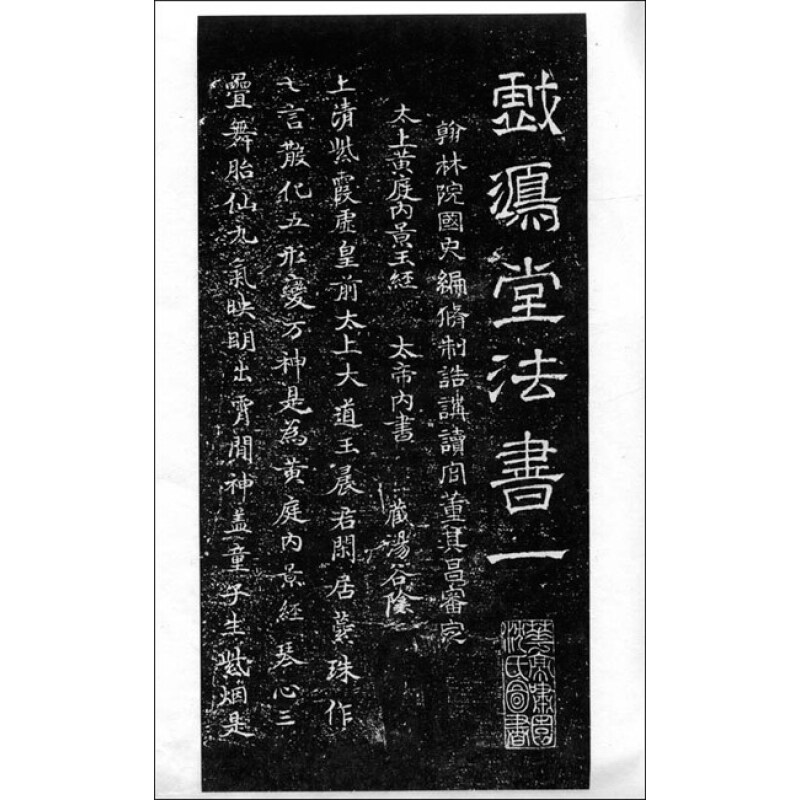 戲鴻堂法書一
翰林院國史編脩制誥講讀官董其昌審定
太上黃庭內景玉經 太帝內書 藏湯谷陰
上清紫霞虛皇前太上大道玉晨君閑居蘂珠作
七言散化五形變万神是為黃庭內景經琴心三
疊舞胎仙九氣映明出霄間神盖童子生紫烟是
華亭嘯園沈氏圖書